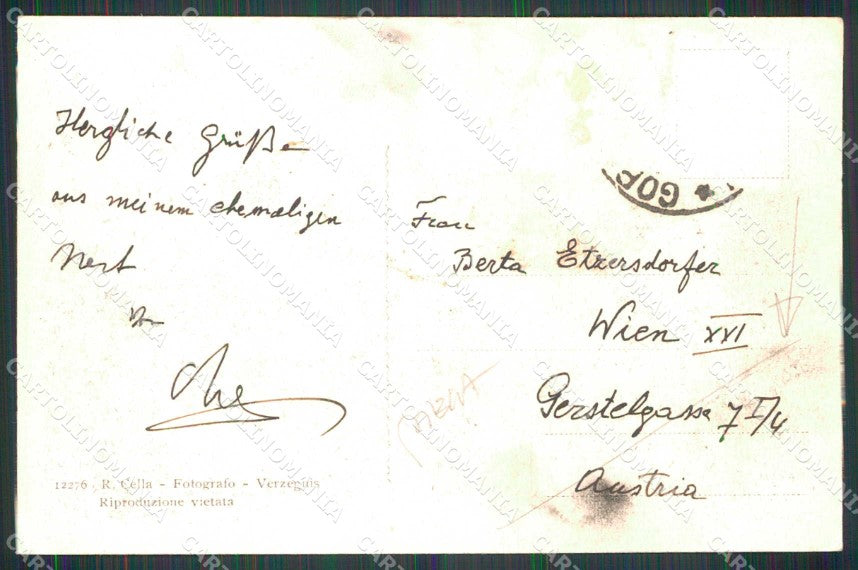 Herzliche Grüße
aus meinem ehemaligen
Nest
von
Frau
Berta Etzersdorfer
Wien XVI
Gerstelgasse 7 I/4
Austria
VIENNA
12276 R. Cella - Fotografo - Verzegnis
Riproduzione vietata
GOR
CARTOLINOMANIA